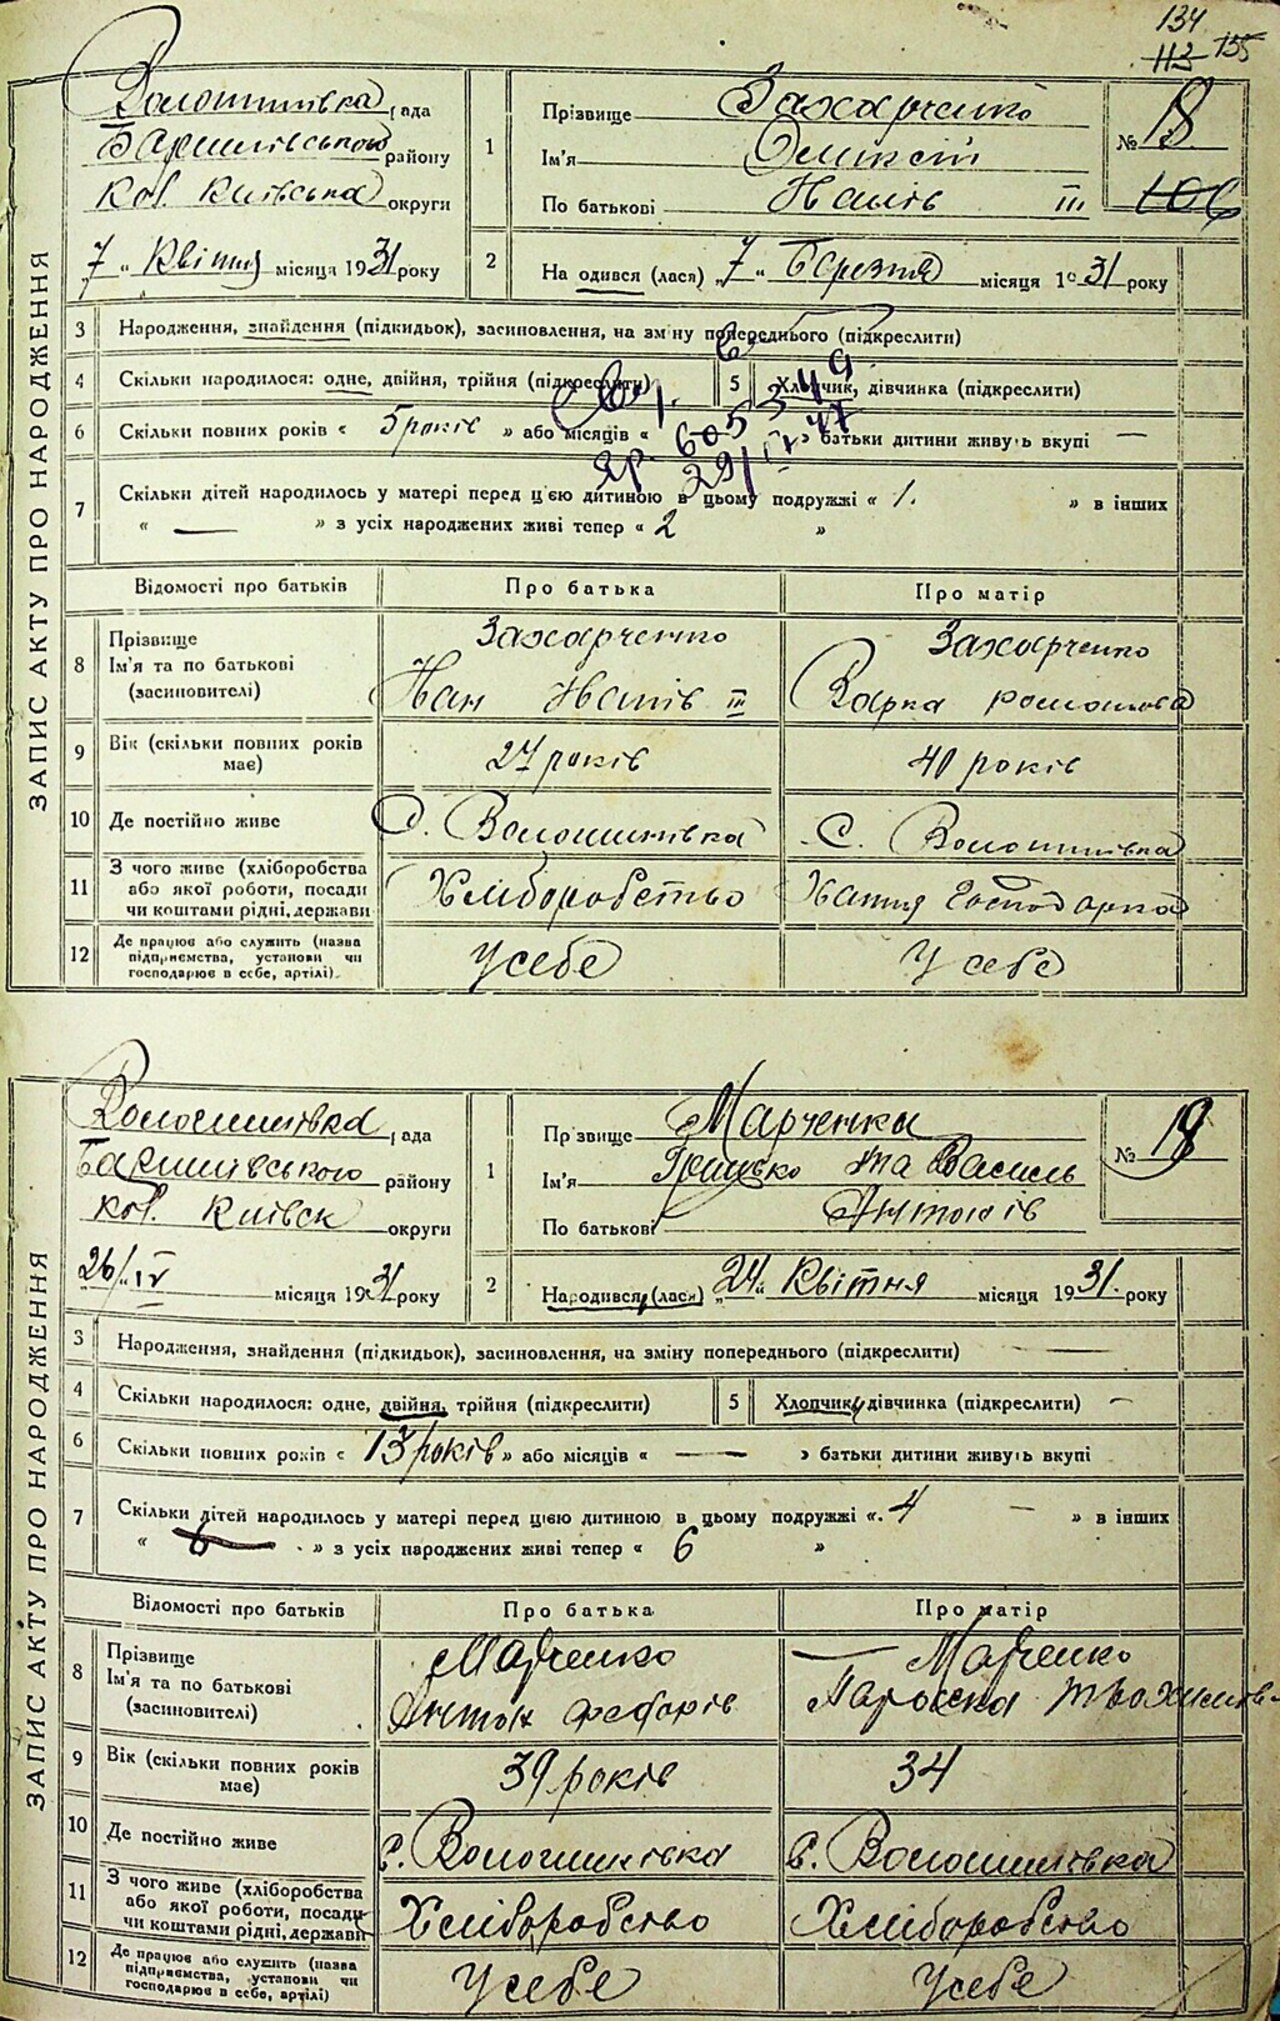 134
113 155
Волошинівка рада
Баришівського району
кол. Київська округи
„7" Квітня місяця 1931 року
1
Прізвище Захарченко
Ім'я Олексій
По батькові Іванів III
№ 18
106
2
На одився (лася) „7" Березня місяця 1931 року
ЗАПИС АКТУ ПРО НАРОДЖЕННЯ
3 Народження, знайдення (підкидьок), засиновлення, на зміну попереднього (підкреслити)
4 Скільки народилося: одне, двійня, трійня (підкреслити)
5 Хлопчик, дівчинка (підкреслити)
6 Скільки повних років « 5 років » або місяців « » батьки дитини живуть вкупі —
7 Скільки дітей народилось у матері перед цією дитиною в цьому подружжі « 1. » в інших
« — » з усіх народжених живі тепер « 2 »
Відомості про батьків Про батька Про матір
8 Прізвище
Ім'я та по батькові
(засиновителі)
Захарченко
Іван Іванів III
Захарченко
Варка Романова
9 Вік (скільки повних років
має)
27 років
40 років
10 Де постійно живе
С. Волошинівка
С. Волошинівка
11 З чого живе (хліборобства
або якої роботи, посади
чи коштами рідні, держави
Хліборобство
Хатня господарка
12 Де працює або служить (назва
підприємства, установи чи
господарює в себе, артілі)
У себе
У себе
Волошинівка рада
Баришівського району
кол. Київськ округи
26/IV місяця 1931 року
1
Прізвище Марченки
Ім'я Грицько та Василь
По батькові Антонів
№ 19
2
Народився, (лася) „24" Квітня місяця 1931. року
ЗАПИС АКТУ ПРО НАРОДЖЕННЯ
3 Народження, знайдення (підкидьок), засиновлення, на зміну попереднього (підкреслити) —
4 Скільки народилось: одне, двійня, трійня (підкреслити)
5 Хлопчики, дівчинка (підкреслити) —
6 Скільки повних років « 13 років » або місяців « — » батьки дитини живуть вкупі
7 Скільки дітей народилось у матері перед цією дитиною в цьому подружжі « 4 — » в інших
« 6 — » з усіх народжених живі тепер « 6 »
Відомості про батьків Про батька Про матір
8 Прізвище
Ім'я та по батькові
(засиновителі)
Марченко
Антон Федорів
— Марченко
Параска
9 Вік (скільки повних років
має)
39 років
34
10 Де постійно живе
с. Волошинівка
с. Волошинівка
11 З чого живе (хліборобства
або якої роботи, посади
чи коштами рідні, держави
Хліборобство
Хліборобство
12 Де працює або служить (назва
підприємства, установи чи
господарює в себе, артілі)
У себе
У себе